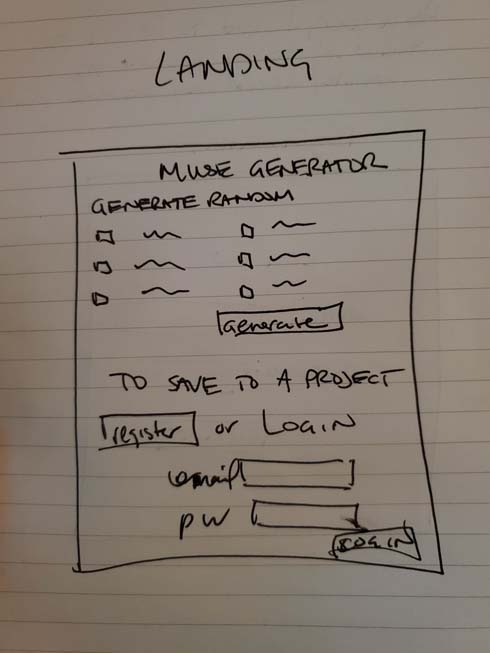 LANDING
MUSE GENERATOR
GENERATE RANDOM
Generate
TO SAVE TO A PROJECT
register or LOGIN
email
pw
LOG IN